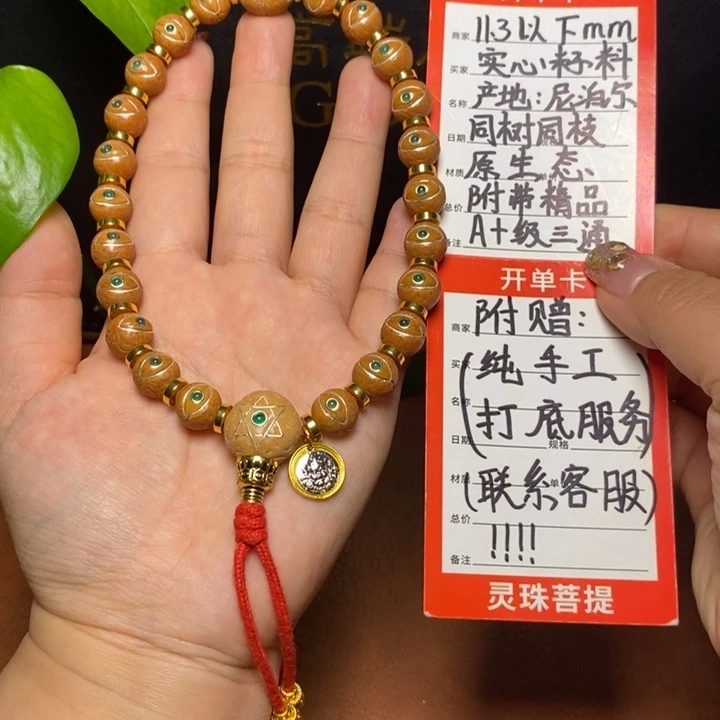 商家 11.3以下mm
买家 实心籽料
名称 产地:尼泊尔
日期 同树同枝
材质 原生态、
总价 附带精品
备注 A+级三通
开单卡
商家 附赠:
买家 (纯手工
名称 打底服务)
日期 规格
材质 (联系客服)
总价 !!!!
备注
灵珠菩提